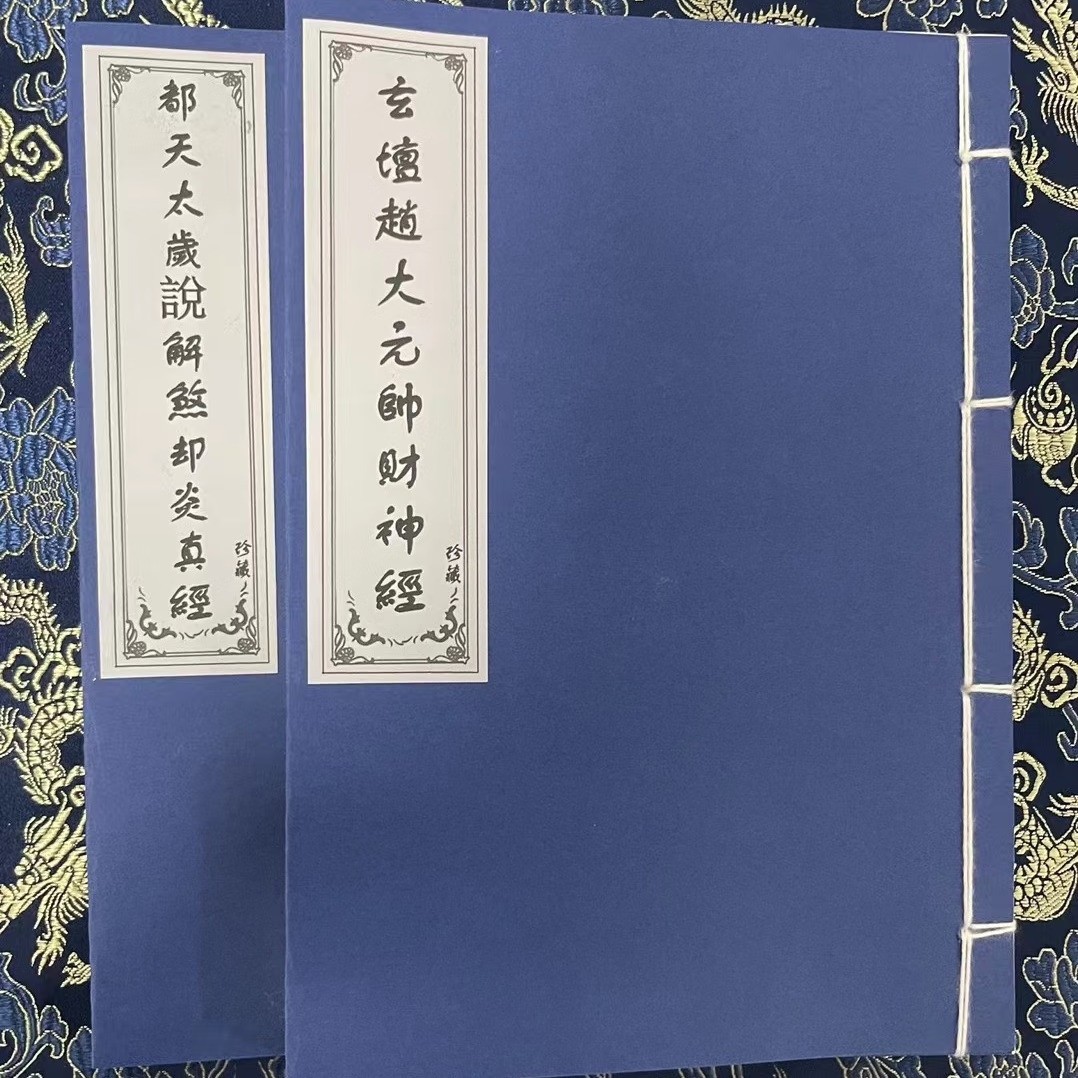 都天太歲說解煞却炎真經
珍藏
玄壇趙大元帥財神經
珍藏